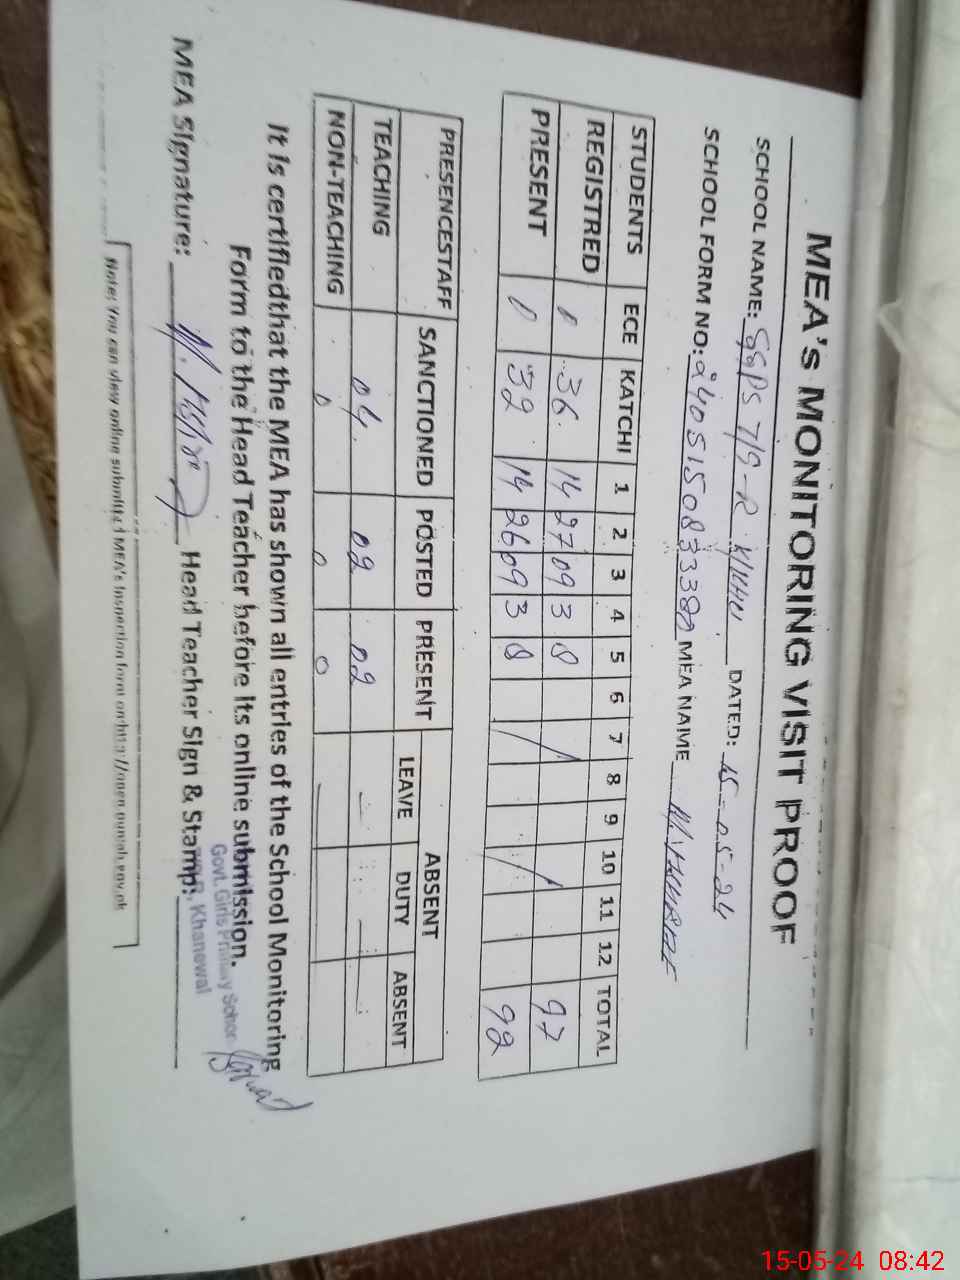 MEA's MONITORING VISIT PROOF
SCHOOL NAME: GGPS 7/9-R DATED: 15-05-24
SCHOOL FORM NO: MEA NAME
STUDENTS ECE KATCHI 1 2 3 4 5 6 7 8 9 10 11 12 TOTAL
REGISTRED 0 36 14 27 09 3 8 97
PRESENT 0 32 14 26 09 3 8 92
PRESENCESTAFF SANCTIONED POSTED PRESENT ABSENT
LEAVE DUTY ABSENT
TEACHING 04 02 02
NON-TEACHING 0 0 0
It is certifiedthat the MEA has shown all entries of the School Monitoring
Form to the Head Teacher before its online submission.
Govt. Girls Primary School
Khanewal
MEA Signature: Head Teacher Sign & Stamp:
Note: You can view online submitted MEA's inspection form on http://open.punjab.gov.pk
15-05-24 08:42